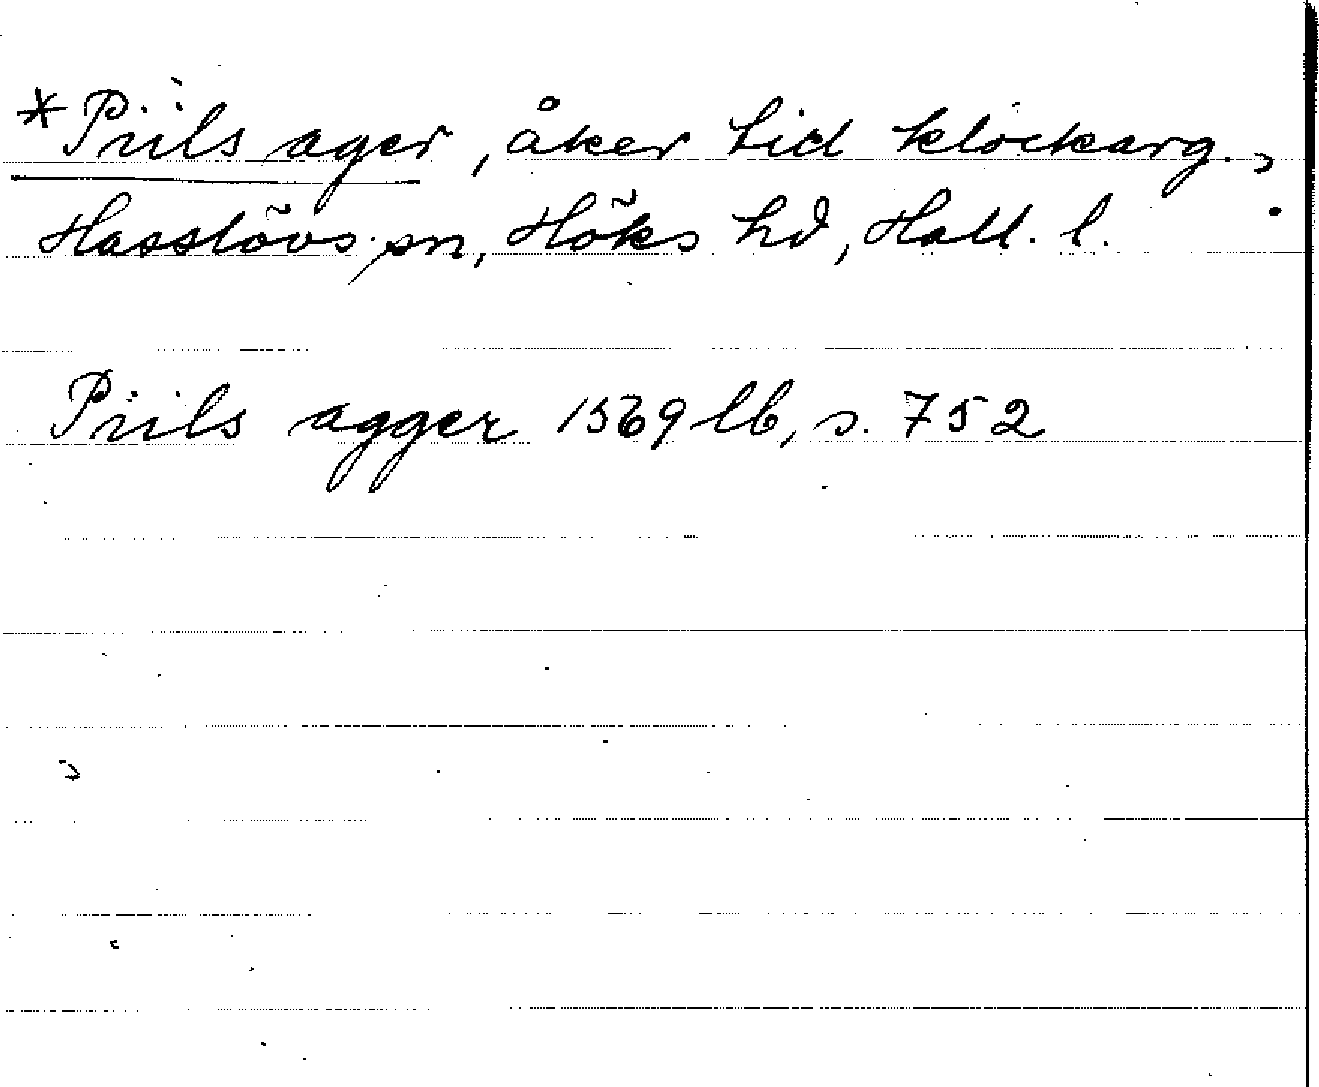 *Piils ager, åker tid klockarg.,
Hasslövs sn, Höks hd, Hall. l.
Piils agger 1569 lb, s. 752